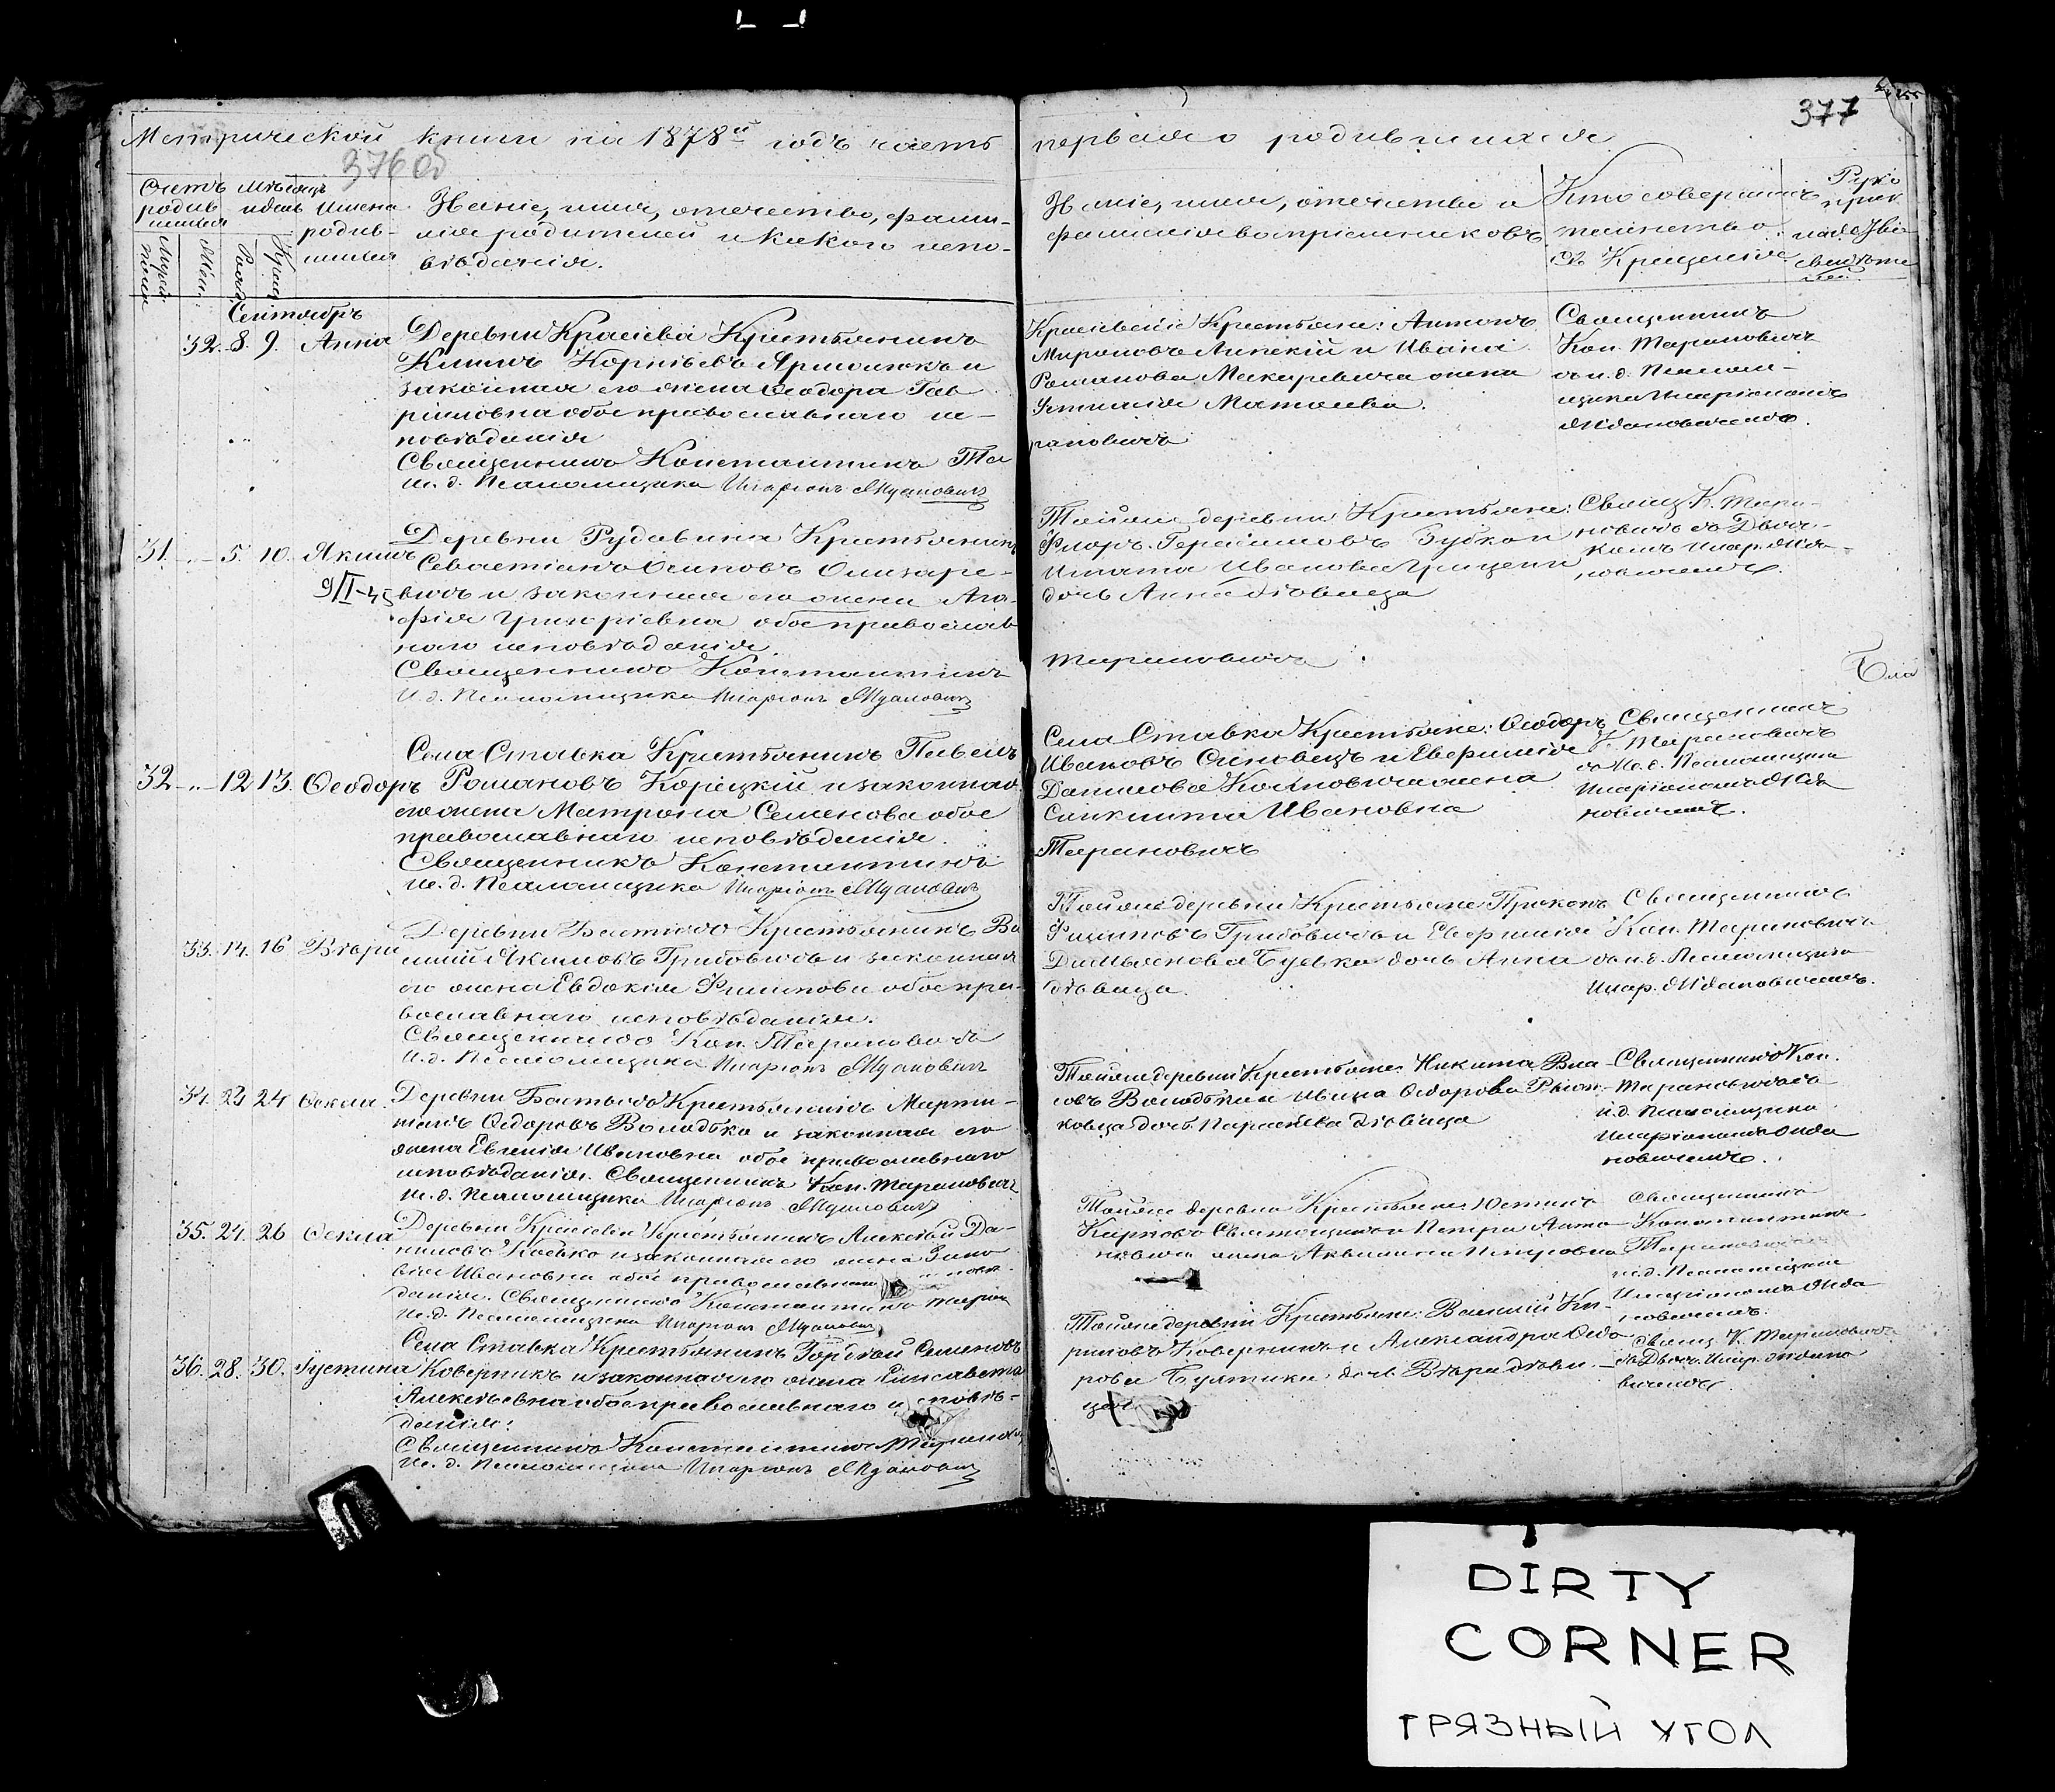 377
Метрической книги на 1878й годъ часть первая о родившихся
376 об
Счетъ родив
шихся
Мѣсяцъ
и день
Имена
родив-
шихся
Званіе, имя, отечество, фами-
лія родителей и какого испо-
вѣданія.
Званіе, имя, отечество и
фамилія воспріемниковъ
Кто совершилъ
таинство
Св. Крещенія
Сентябрь
32. 8. 9. Анна
Деревни Краснева Крестьянинъ
Климъ Корнѣевъ и
законная его жена Ѳеодора Гав
риловна обое православнаго ис-
повѣданія
Священникъ Константинъ Та
И. д. Псаломщика Иларіонъ Жданович
Крестьяне: Антонъ
Мироновъ Липскій и Ивана
Романова Макаревича жена
Матвеева.
рановичъ
Священникъ
Кон. Тарановичъ
съ и. д. Псалом-
щика Иларіономъ
Ждановичемъ.
31. -"- 5. 10. Якимъ
9/II-45
Деревни Рудавина Крестьянинъ
Севастіанъ Осиповъ Олизаре-
вичъ и законная его жена Ага-
фія Григоріевна обое православ
наго исповѣданія.
Священникъ Константинъ
И. д. Псаломщика Иларіонъ Жданович
Тойже деревни Крестьяне:
Флоръ Герасимовъ Зубко и
Игната Иванова Грицени
дочь Анна дѣвица
Тарановичъ
Свящ. К. Тара-
новичъ съ Дьяч-
комъ Илар. Жда-
новичемъ.
Бла
32 -"- 12 13. Ѳеодоръ
Села Ставка Крестьянинъ Павелъ
Романовъ Корецкій и законная
его жена Матрона Семенова обое
православнаго исповѣданія.
Священникъ Константинъ
И. д. Псаломщика Иларіонъ Жданович
Села Ставка Крестьяне: Ѳеодоръ
Ивановъ и Евфимія
Данилова жена
Ивановна
Тарановичъ
Священникъ
К. Тарановичъ
съ И. д. Псаломщика
Иларіономъ Жда
новичемъ.
33. 14. 16 Вѣра
Деревни Бастово Крестьянинъ Ва
силій Якимовъ Грибовичъ и законная
его жена Евдокія Филипова обое пра-
вославнаго исповѣданія.
Священникъ Кон. Тарановичъ
И. д. Псаломщика Иларіонъ Жданович
Тойже деревни Крестьяне Прокопъ
Филиповъ Грибовичъ и Евфимія
Дамьянова дочь Анна
дѣвица.
Священникъ
Кон. Тарановичъ
съ и. д. Псаломщика
Илар. Ждановичемъ.
34. 23 24 Ѳекла.
Деревни Бастово Крестьянинъ Марти-
нъ Ѳедоровъ Володько и законная его
жена Евгенія Ивановна обое православнаго
исповѣданія. Священникъ Кон. Тарановичъ
И. д. Псаломщика Иларіонъ Жданович
Тойже деревни Крестьяне: Никита Вла-
совъ Володько и Ивана Ѳедорова
дочь Параскева дѣвица
Священникъ Кон.
Тарановичъ съ
и. д. Псаломщика
Иларіономъ Жда
новичемъ.
35. 24. 26 Ѳекла
Деревни Краснева Крестьянинъ Алексѣй Да-
ниловъ Косько и законная его жена Зино
вія Ивановна обое православнаго исповѣ-
данія. Священникъ Константинъ Таран
И. д. Псаломщика Иларіонъ Жданович
Тойже деревни Крестьяне: Юстинъ
Карповъ и Петра Анто-
новича жена Акилина Петровна
Священникъ
Константинъ
Тарановичъ
и. д. Псаломщика
Иларіономъ Жда
новичемъ.
36. 28. 30. Іустина
Села Ставка Крестьянинъ Гордѣй Семеновъ
Коверникъ и законная его жена Елисавета
Алексѣевна обое православнаго исповѣ-
данія:
Священникъ Константинъ Таранов
И. д. Псаломщика Иларіонъ Жданович
Тойже деревни Крестьяне: Василій Ки-
риловъ Коверникъ и Александра Ѳедо
рова дочь Вѣра дѣви-
ца
Свящ. К. Тарановичъ
съ Дьяч. Илар. Ждано
вичемъ.
DIRTY
CORNER
ГРЯЗНЫЙ УГОЛ